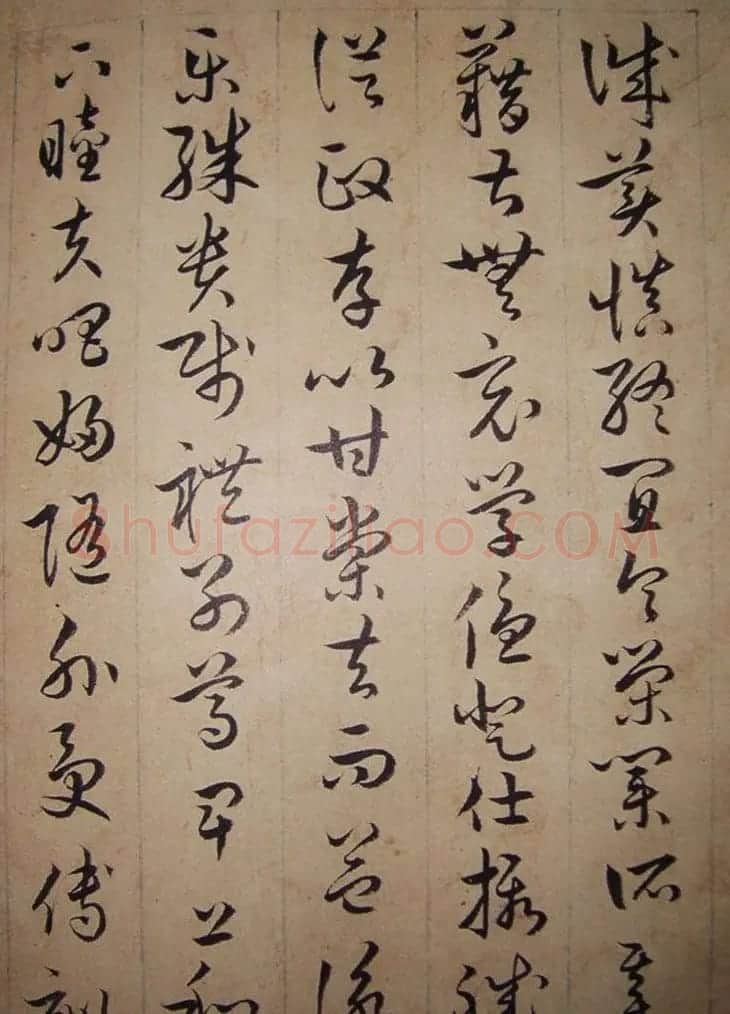 誠美慎終宜令榮業所基
籍甚無竟學優登仕攝職
從政存以甘棠去而益詠
樂殊貴賤禮別尊卑上和
下睦夫唱婦隨外受傅訓
shufaziliao.COM